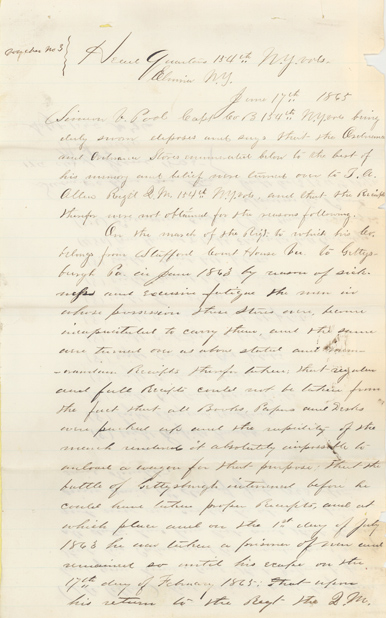 Voucher No 3
Head Quarters 154th N.Y. vols.
Elmira N.Y.
June 17th 1865
Simeon V. Pool Capt Co B. 154th N.Y. vols being
duly sworn deposes and says that the Ordnance
and Ordnance Stores enumerated below to the best of
his memory and belief were turned over to T. A.
Allen Regt'l Q.M. 154th N.Y. vols, and that the Receipts
therefor were not obtained for the reasons following.
On the march of the Regt. to which he be-
longs from Stafford Court House Va. to Gettys-
burgh Pa. in June 1863 by reason of sick-
ness and excessive fatigue the men in
whose possession these Stores were, became
incapacitated to carry them, and the same
were turned over as above stated and
Receipts therefor taken; that regular
and full Receipts could not be taken from
the fact that all Books, Papers and Desks
were packed up and the rapidity of the
march rendered it absolutely impossible to
unload a wagon for that purpose; that the
battle of Gettysburgh intervened before he
could have taken proper Receipts, and at
which place and on the 1st day of July
1863 he was taken a prisoner of war and
remained so until his escape on the
17th day of February 1865; that upon
his return to the Regt the Q.M.